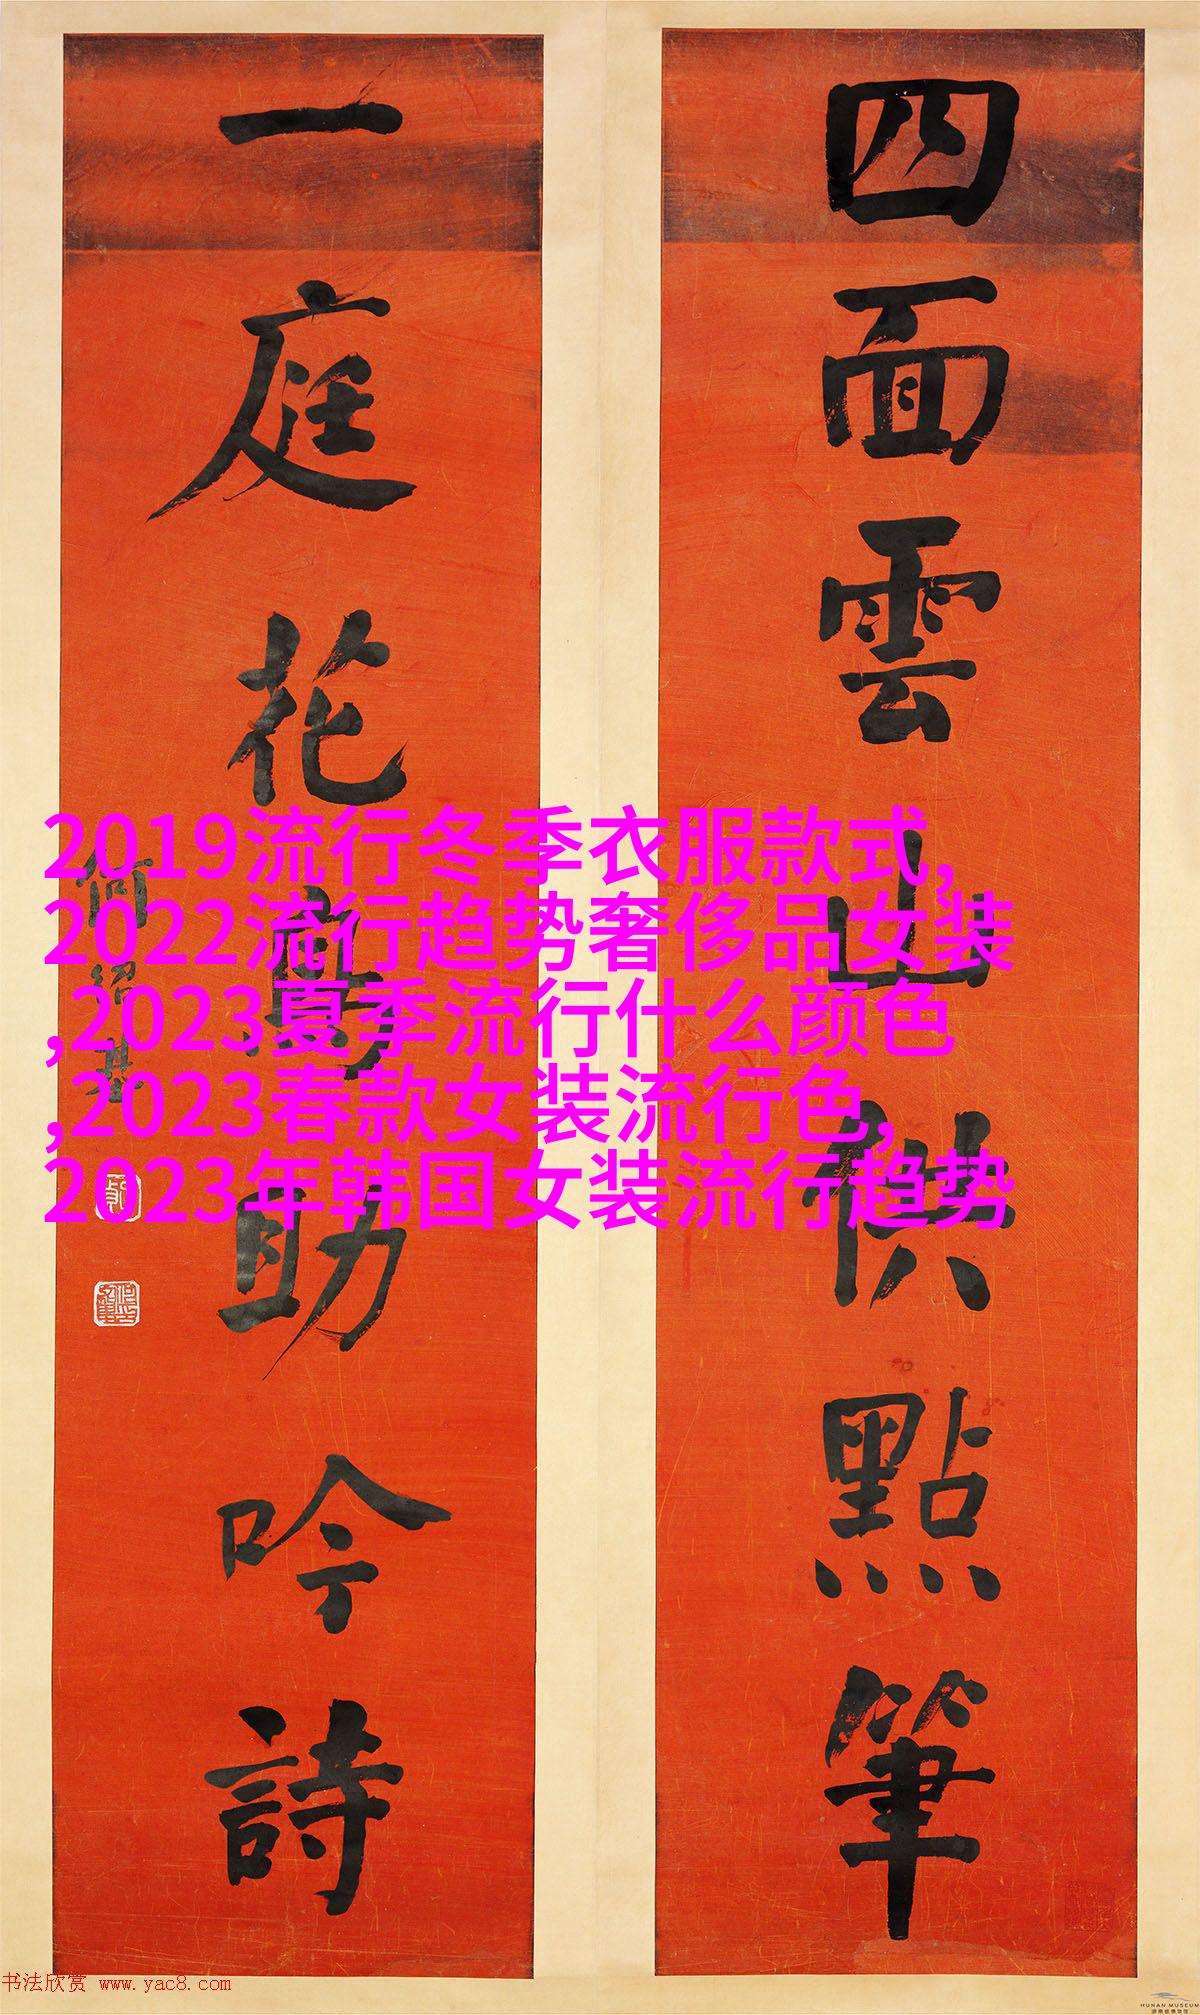 四面雲山供點筆
一庭花鳥助吟詩
何紹基
2019流行冬季衣服款式,
2022流行趋势奢侈品女装
,2023夏季流行什么颜色
,2023春款女装流行色,
2023年韩国女装流行趋势
书法欣赏 www.yac8.com
HUNAN MUSEUM